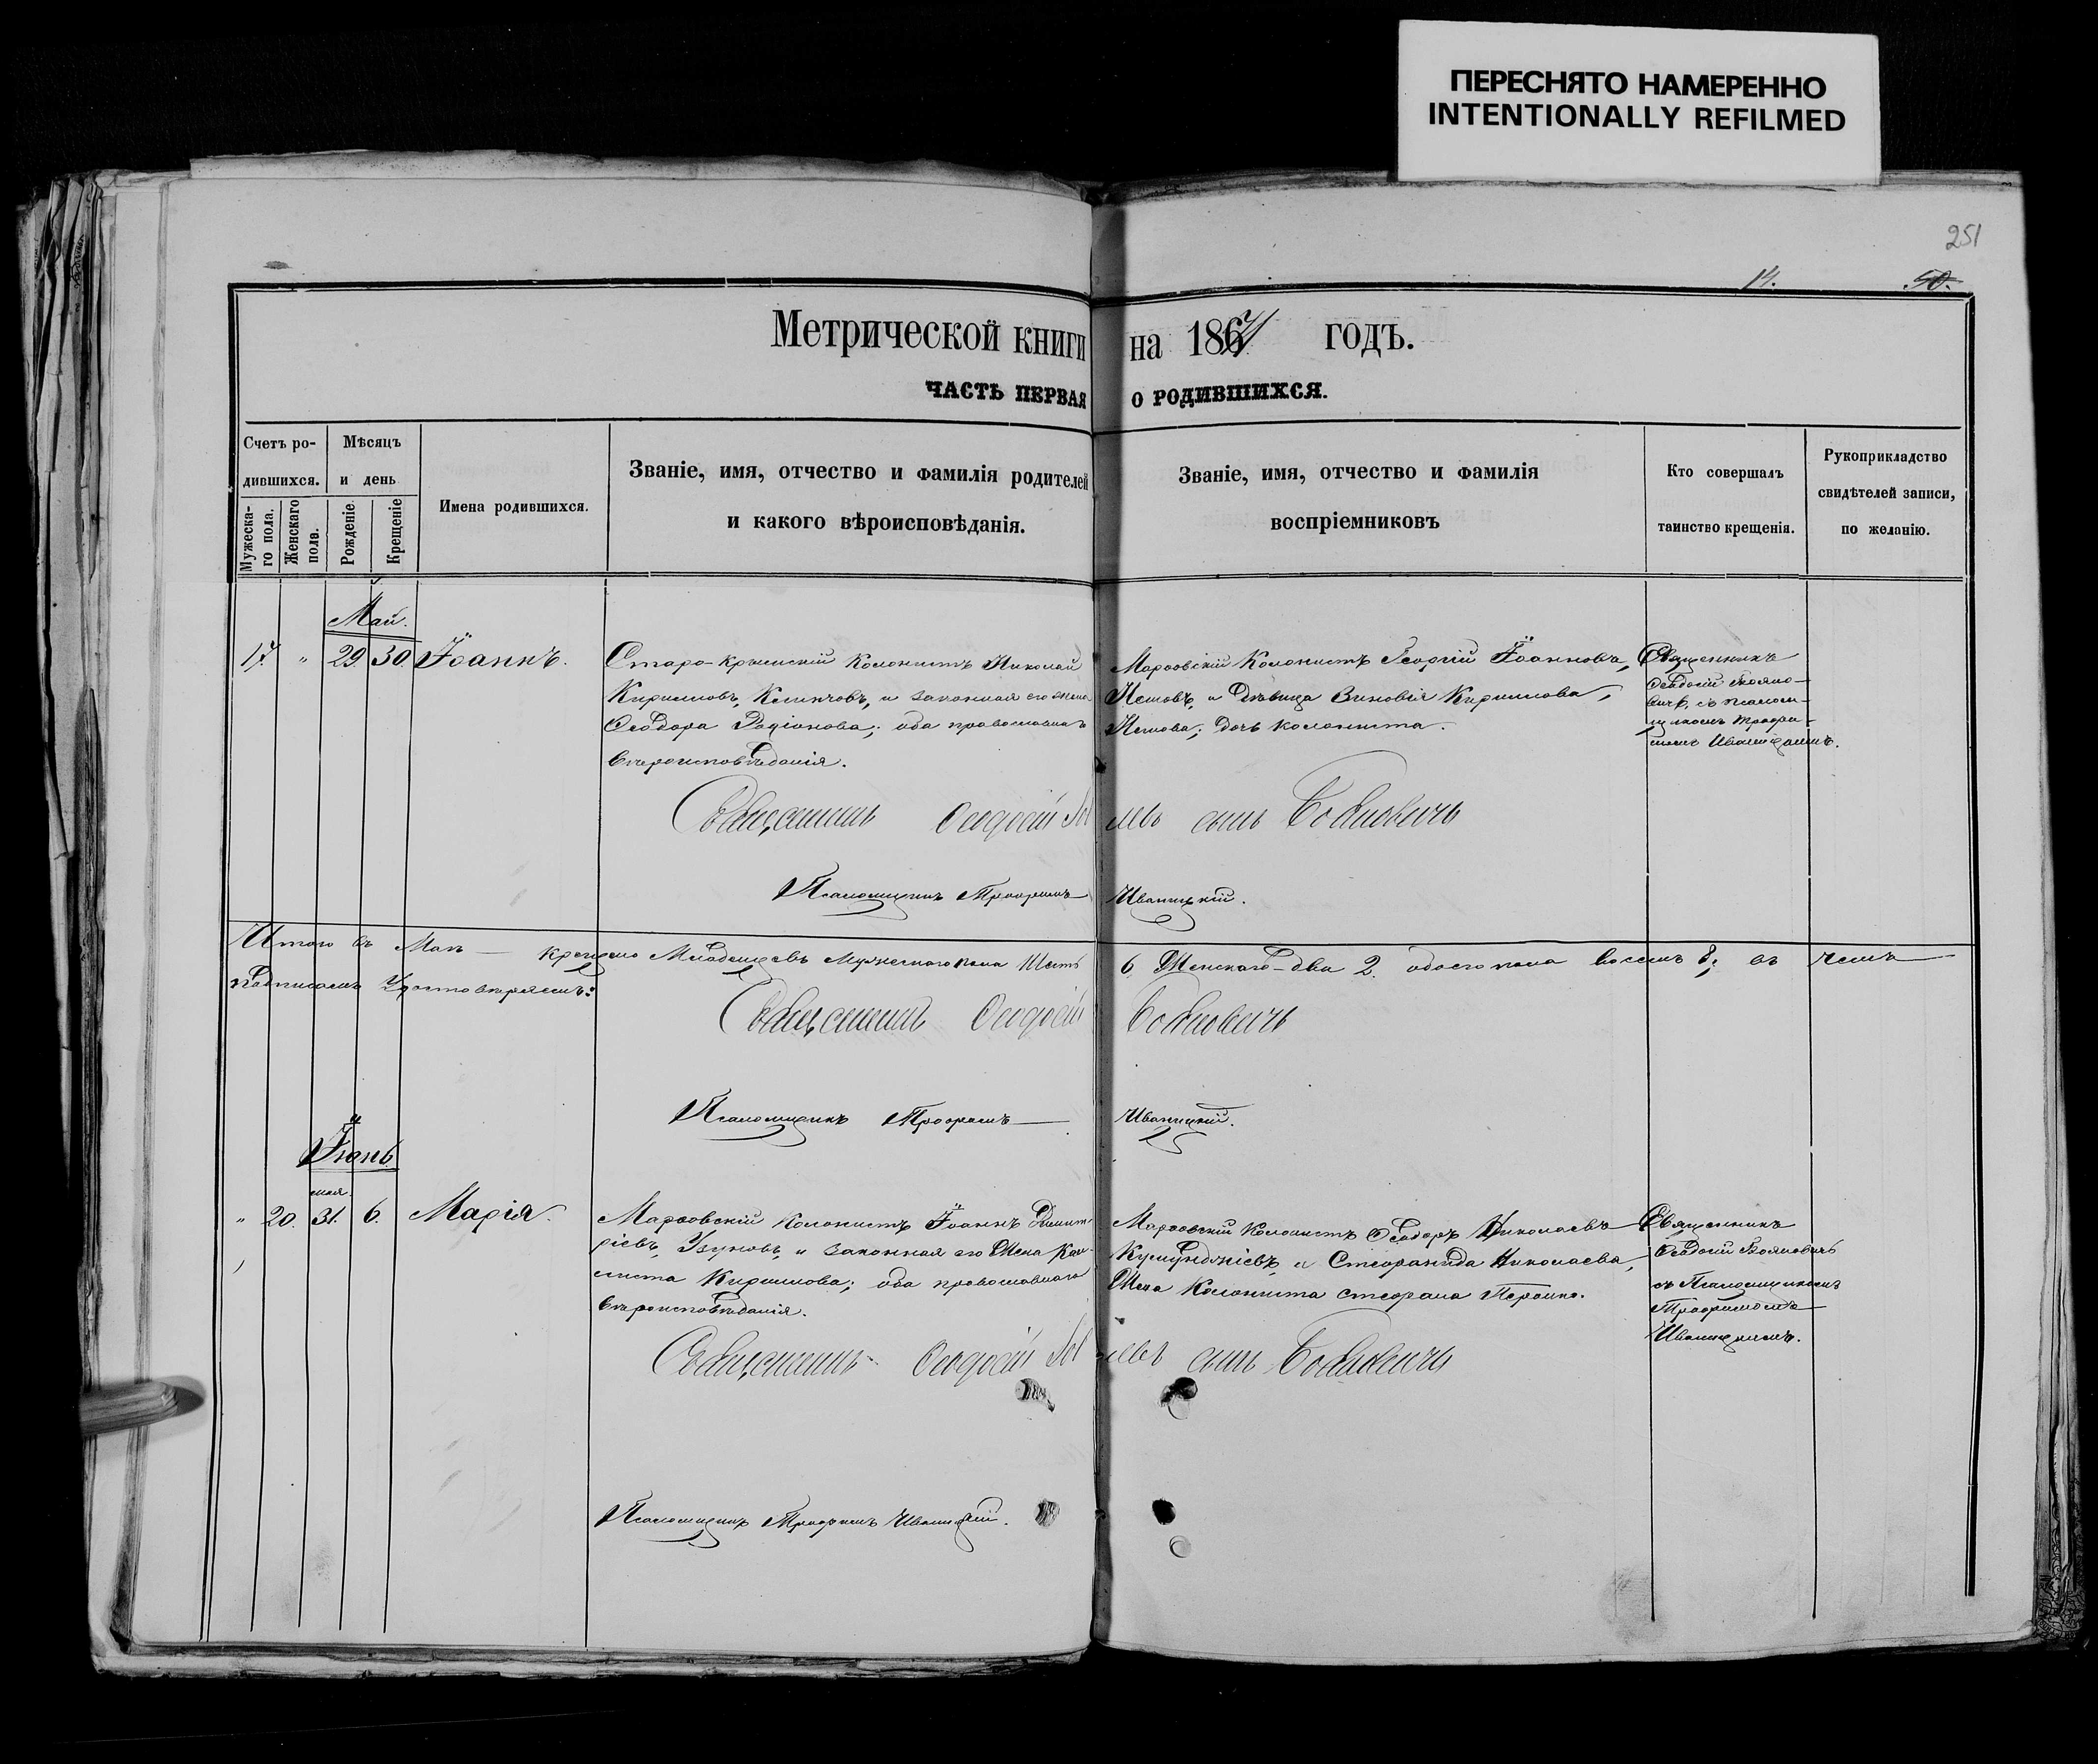 ПЕРЕСНЯТО НАМЕРЕННО
INTENTIONALLY REFILMED
251
14.
50.
Метрической книги на 1871 годъ.
ЧАСТЬ ПЕРВАЯ О РОДИВШИХСЯ.
Счетъ ро-
дившихся.
Мужеска-
го пола.
Женскаго
пола.
Мѣсяцъ
и день
Рожденіе.
Крещеніе
Имена родившихся.
Званіе, имя, отчество и фамилія родителей
и какого вѣроисповѣданія.
Званіе, имя, отчество и фамилія
воспріемниковъ
Кто совершалъ
таинство крещенія.
Рукоприкладство
свидѣтелей записи,
по желанію.
Май.
17. „ 29. 30. Іоаннъ.
Старо-Крымскій колонистъ Николай
Кирилловъ, и законная его жена
Ѳеодора Родіонова; оба православнаго
вѣроисповѣданія.
колонистъ Георгій Іоанновъ,
и дѣвица Зиновія Кириллова,
дочь колониста.
Священникъ
Ѳеодосій Бояно-
вичъ, съ псалом-
щикомъ Трофи-
момъ Иваницкимъ.
Священникъ Ѳеодосій сынъ Бояновичъ
Псаломщикъ Трофимъ Иваницкій.
Итого въ Маѣ — крещено младенцевъ мужескаго пола шесть 6, женскаго - два 2. обоего пола восемь 8; въ чемъ
подписомъ удостовѣряемъ:
Священникъ Ѳеодосій Бояновичъ
Псаломщикъ Трофимъ — Иваницкій.
Іюнь
мая.
„ 20. 31. 6. Марія.
колонистъ Іоаннъ Димит-
ріевъ, Узуновъ, и законная его жена Кал-
листа Кириллова; оба православнаго
вѣроисповѣданія.
колонистъ Ѳеодоръ Николаевъ
и Стефанида Николаева,
жена колониста Стефана
Священникъ
Ѳеодосій Бояновичъ
съ Псаломщикомъ
Трофимомъ
Иваницкимъ.
Священникъ Ѳеодосій сынъ Бояновичъ
Псаломщикъ Трофимъ Иваницкій.